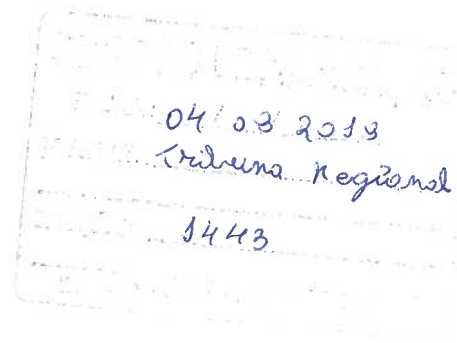 04 03 2019
Tribuna Regional
1443